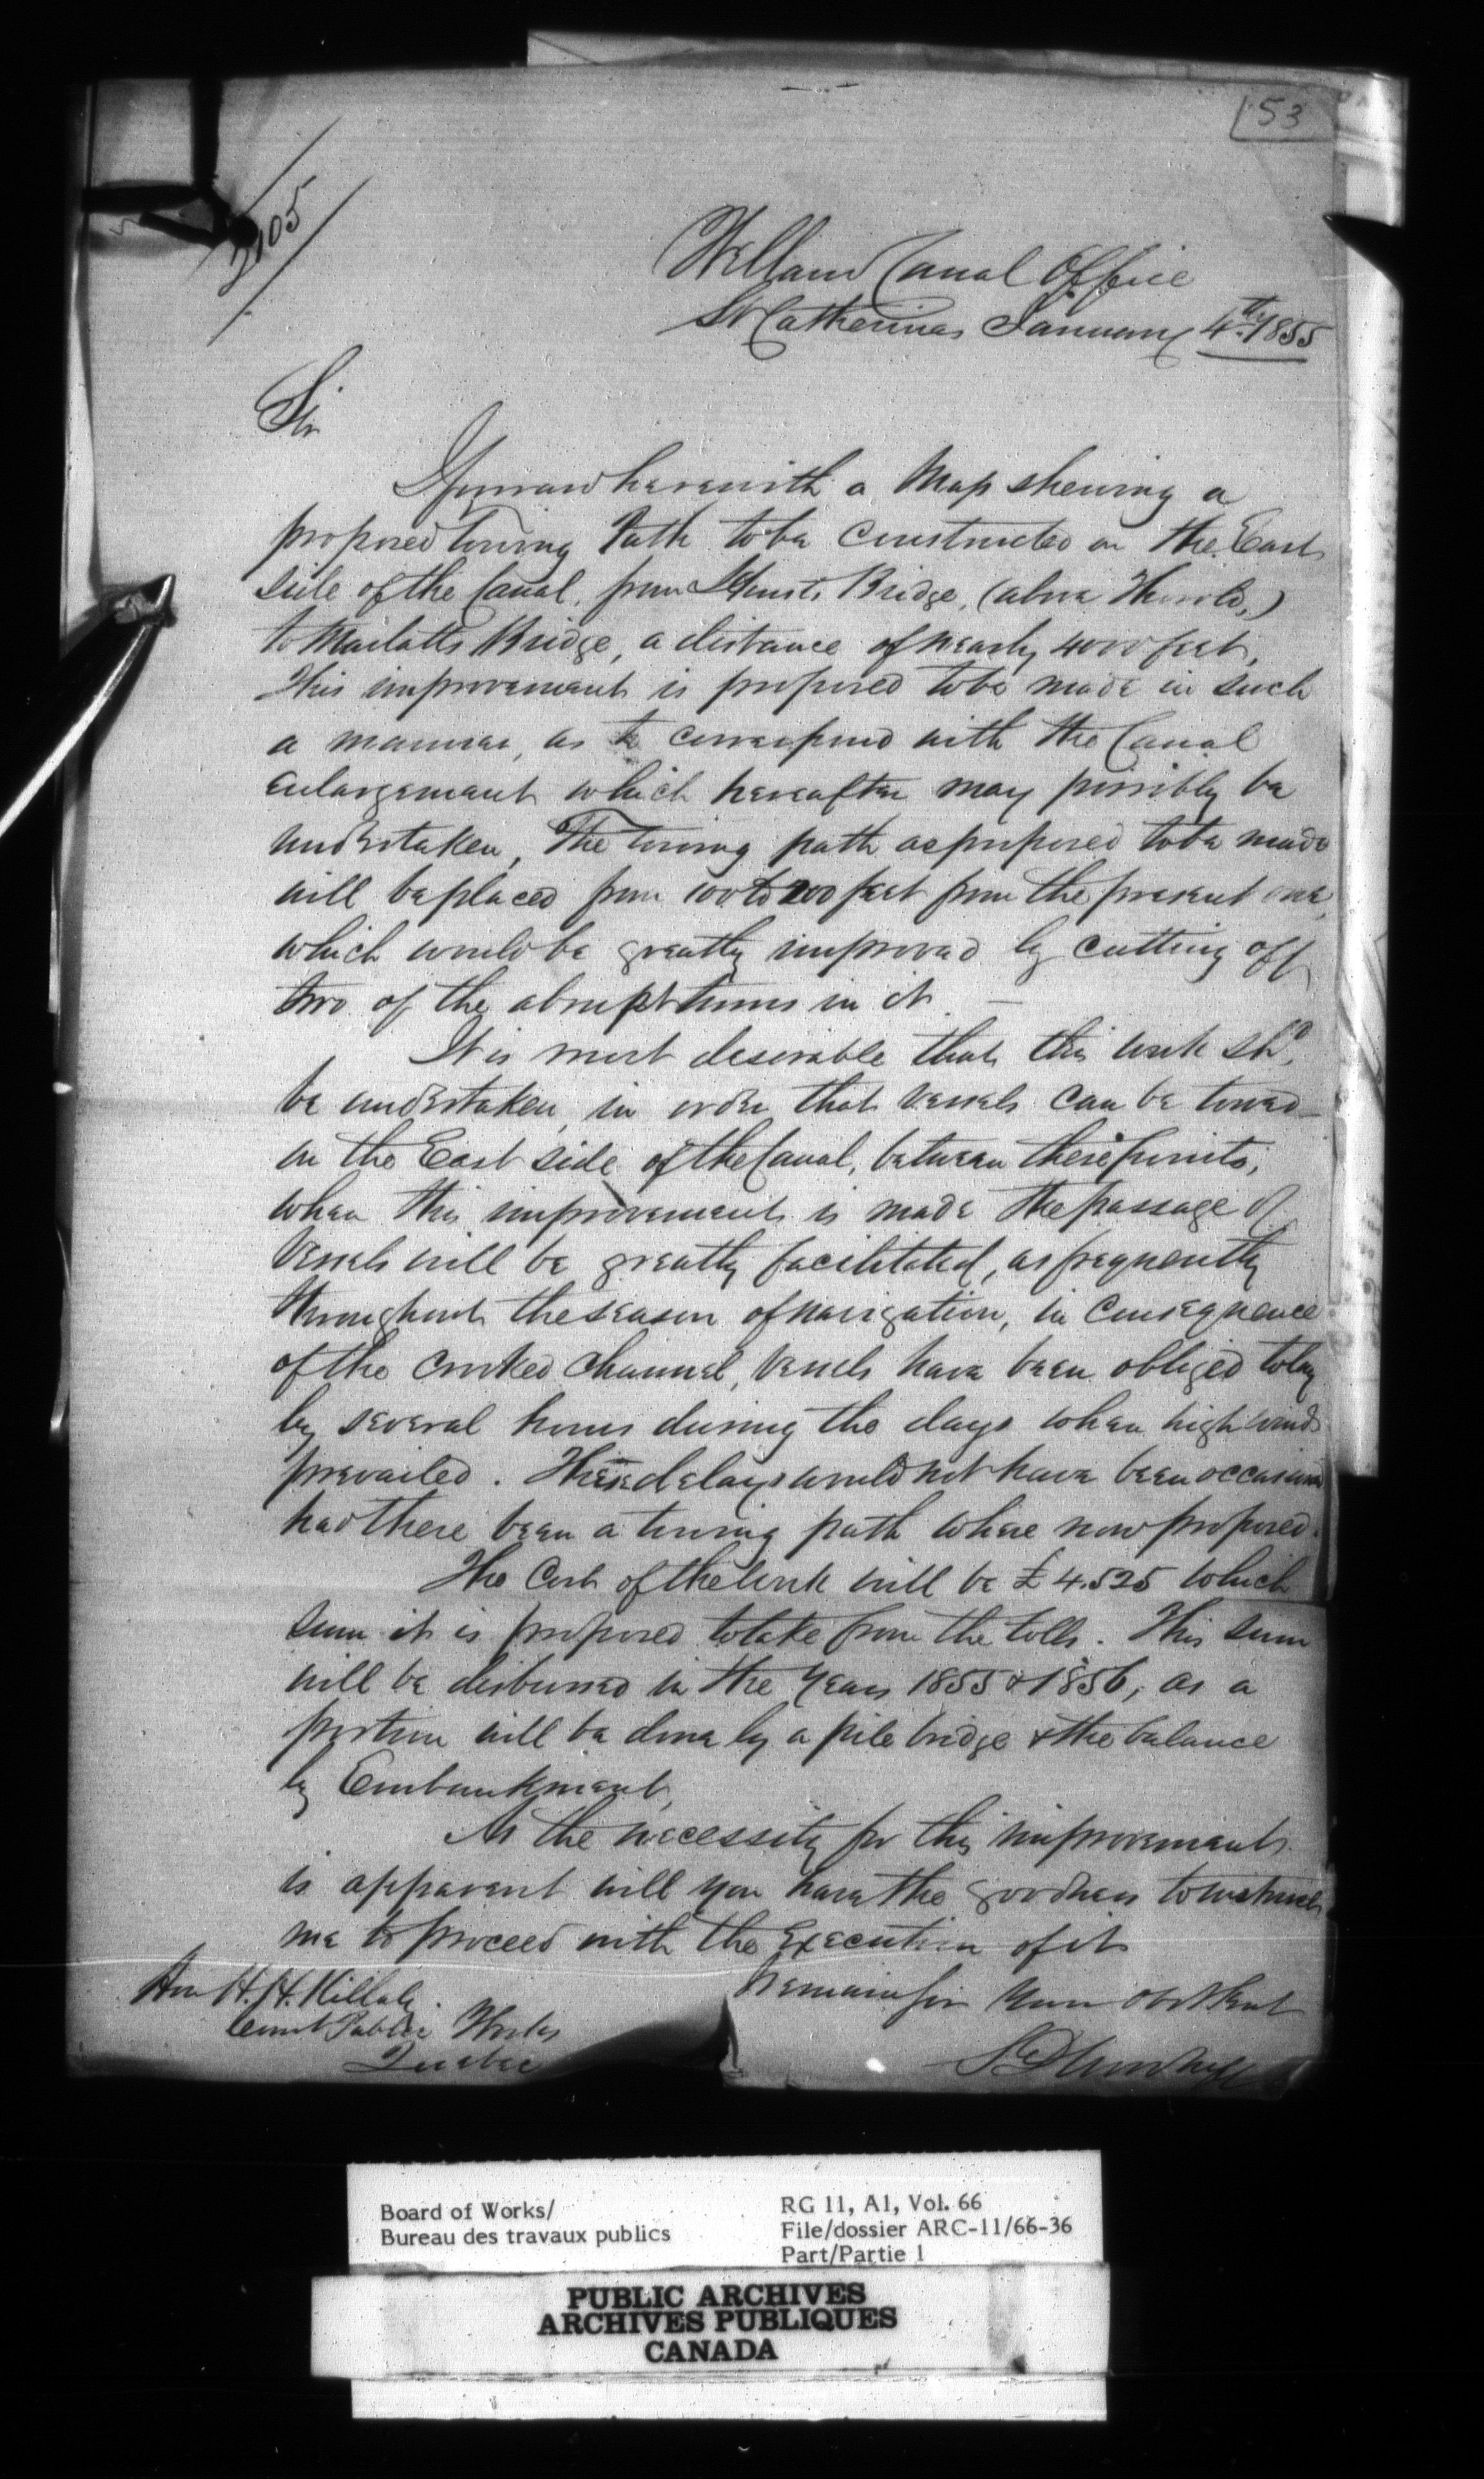 53
Welland Canal Office
St Catherines January 4th. 1855
Sir
I forward herewith a Map shewing a
proposed Towing Path to be constructed on the East
side of the Canal, from Bridge, (above Thorold,)
to Marlatts Bridge, a distance of nearly 4000 feet,
This improvement is proposed to be made in such
a manner, as to correspond with the Canal
enlargement which hereafter may possibly be
undertaken, The towing path as proposed to be made
will be placed from 100 to 200 feet from the present one,
which would be greatly improved by cutting off
two of the abrupt turns in it –
It is most desirable that this work shd.
be undertaken, in order that vessels can be towed
on the East side of the Canal, between these points,
when this improvement is made the passage of
Vessels will be greatly facilitated, as frequently
throughout the season of navigation, in consequence
of the crooked channel, vessels have been obliged to lay
by several hours during the days when high winds
prevailed. These delays would not have been occasioned
had there been a towing path where now proposed.
The Cost of the work will be £4.525 which
sum it is proposed to take from the tolls. This sum
will be disbursed in the Years 1855 & 1856, as a
portion will be done by a pile bridge & the balance
by Embankment,
As the necessity for this improvement
is apparent will you have the goodness to instruct
me to proceed with the Execution of it
I remain Sir Your obt Servt
Hon H. H. Killaly.
Comt Public Works
Quebec
Board of Works/
Bureau des travaux publics
RG 11, A1, Vol. 66
File/dossier ARC-11/66-36
Part/Partie 1
PUBLIC ARCHIVES
ARCHIVES PUBLIQUES
CANADA